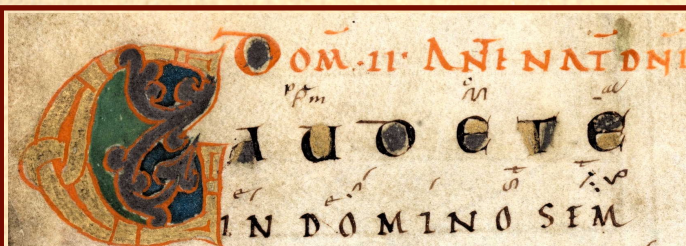 DOM̄·II· ANTE NAT̄ DNI
GAUDETE
IN DOMINO SEM